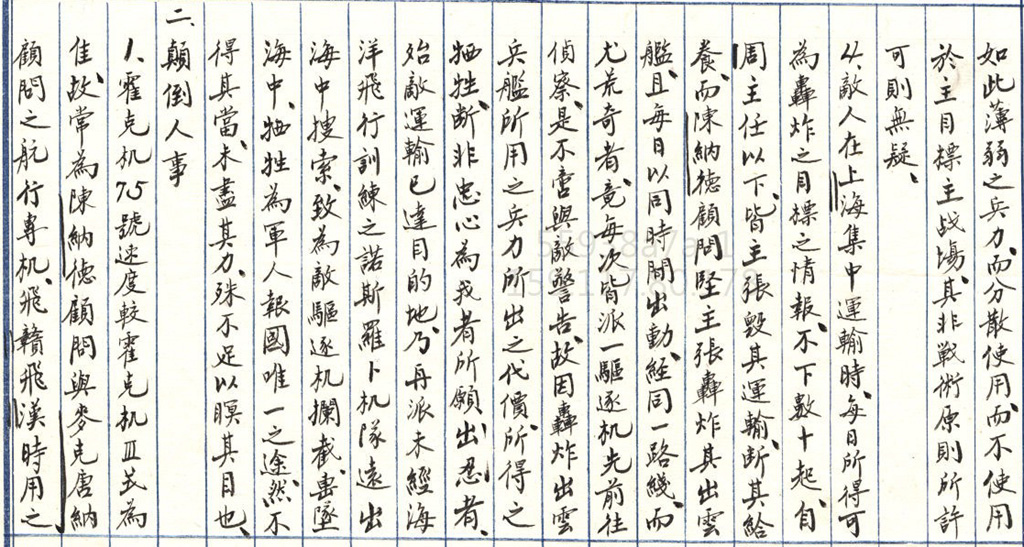 如此薄弱之兵力、而分散使用、而不使用
於主目標主战場、其非戰術原則所許
可則無疑、
4、敵人在上海集中運輸時、每日所得可
為轟炸之目標之情報、不下數十起、自
周主任以下、皆主張毀其運輸、断其給
養、而陳納德顧問堅主張轟炸其出雲
艦、且每每日以同時間出動、経同一路綫、而
尤荒奇者、竟每次皆派一驅逐机先前往
偵察、是不啻與敵警告、故因轟炸出雲
兵艦所用之兵力所出之代價、所得之
牺牲、断非忠心為我者所願、出忍者、
殆敵運輸已達目的地、乃再派未經海
洋飛行訓練之諾斯羅卜机隊遠出
海中搜索、致為敵驅逐机攔截、墜
海中、牺牲為軍人報國唯一之途、然不
得其當、未盡其力、殊不足以瞑其目也、
二、顛倒人事
1、霍克机75號速度較霍克机III式為
佳、故常為陳納德顧問與麥克唐納
顧問之航行專机、飛贛飛漢時用之